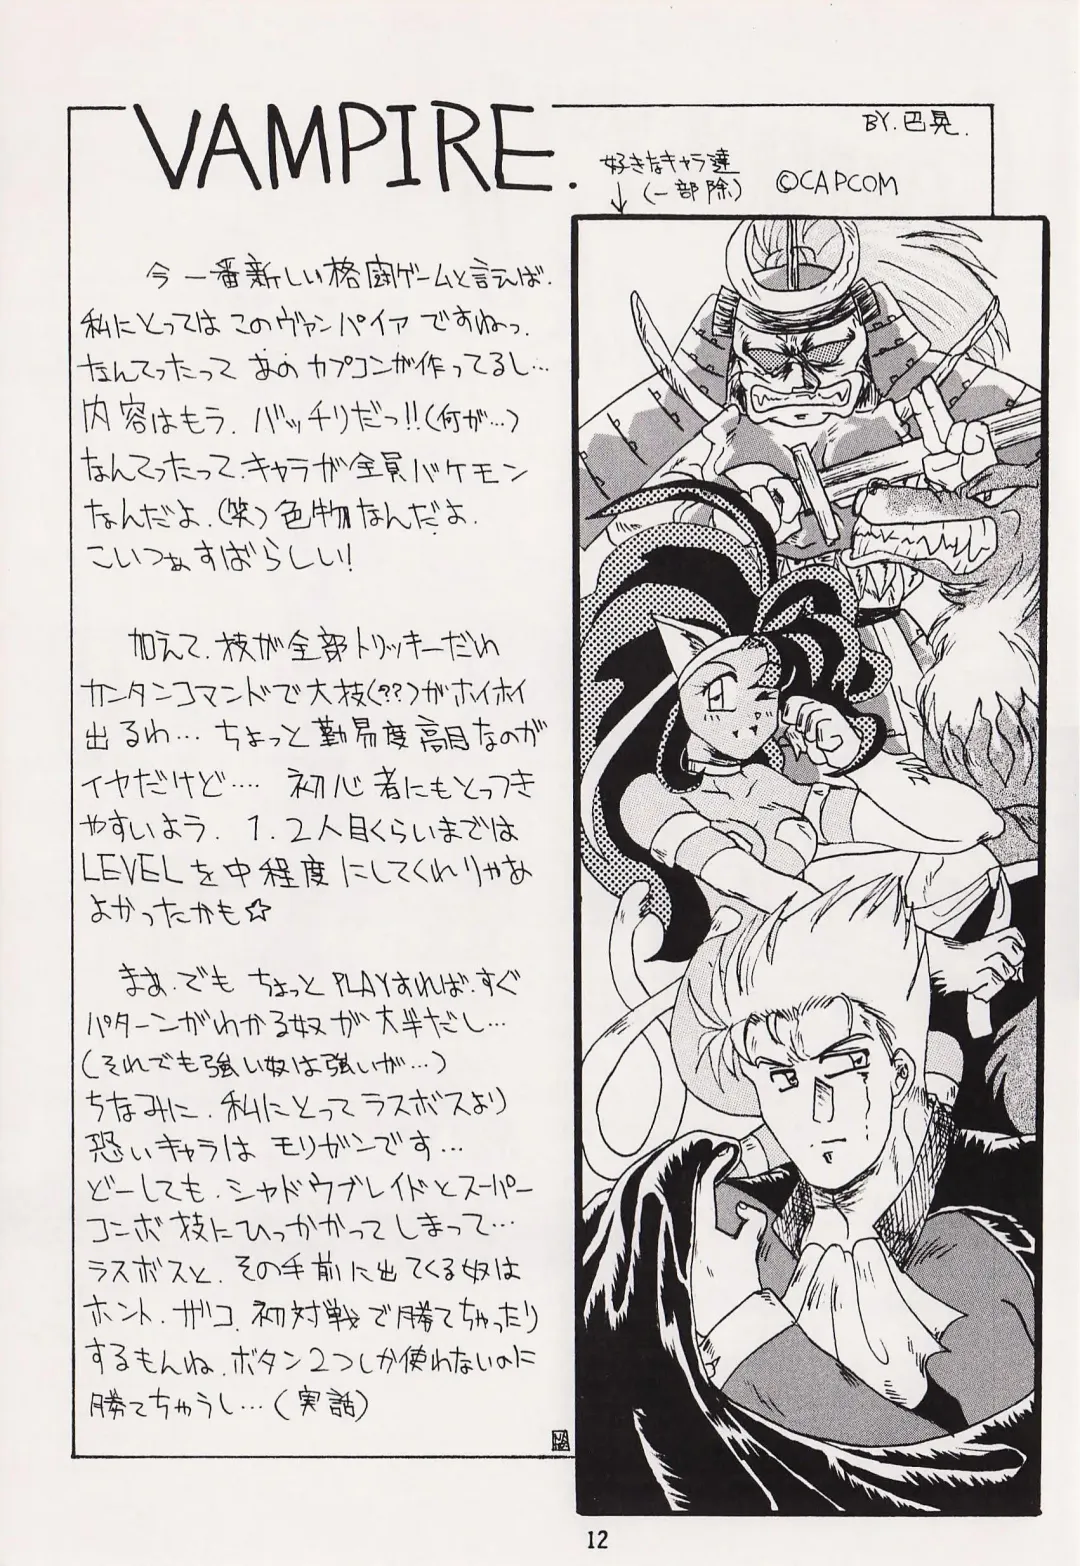 VAMPIRE.
BY. 巴晃.
好きなキャラ達
(一部除)
©CAPCOM
今一番新しい格闘ゲームと言えば.
私にとってはこのヴァンパイァですねっ.
なんてったってあのカプコンが作ってるし…
内容はもう.バッチリだっ!!(何が…)
なんてったって.キャラが全員バケモン
なんだよ.(笑)色物なんだよ.
こいつぁすばらしい!
加えて.技が全部トリッキーだわ
カンタンコマンドで大技(??)がホイホイ
出るわ… ちょっと難易度高目なのが
イヤだけど…. 初心者にもとっつき
やすいよう. 1.2人目くらいまでは
LEVELを中程度にしてくれりゃあ
よかったかも☆
まあ.でもちょっとPLAYすれば.すぐ
パターンがわかる奴が大半だし…
(それでも強い奴は強いが…)
ちなみに.私にとってラスボスより
恐いキャラはモリガンです…
どーしても.シャドウブレイドとスーパー
コンボ技にひっかかってしまって…
ラスボスと.その手前に出てくる奴は
ホント.ザコ.初対戦で勝てちゃったり
するもんね.ボタン2つしか使わないのに
勝てちゃうし…(実話)
12